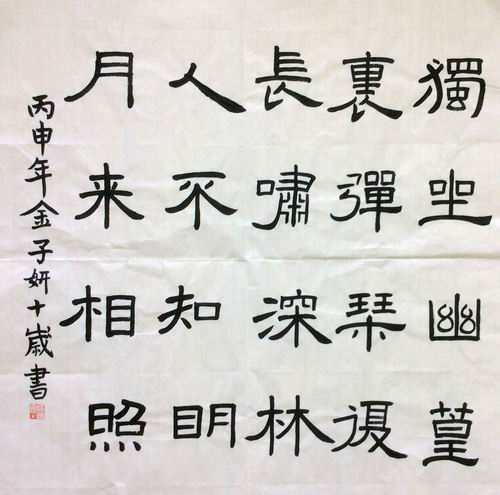 獨坐幽篁
裏彈琹復
長嘯深林
人不知明
月来相照
丙申年金子妍十歲書